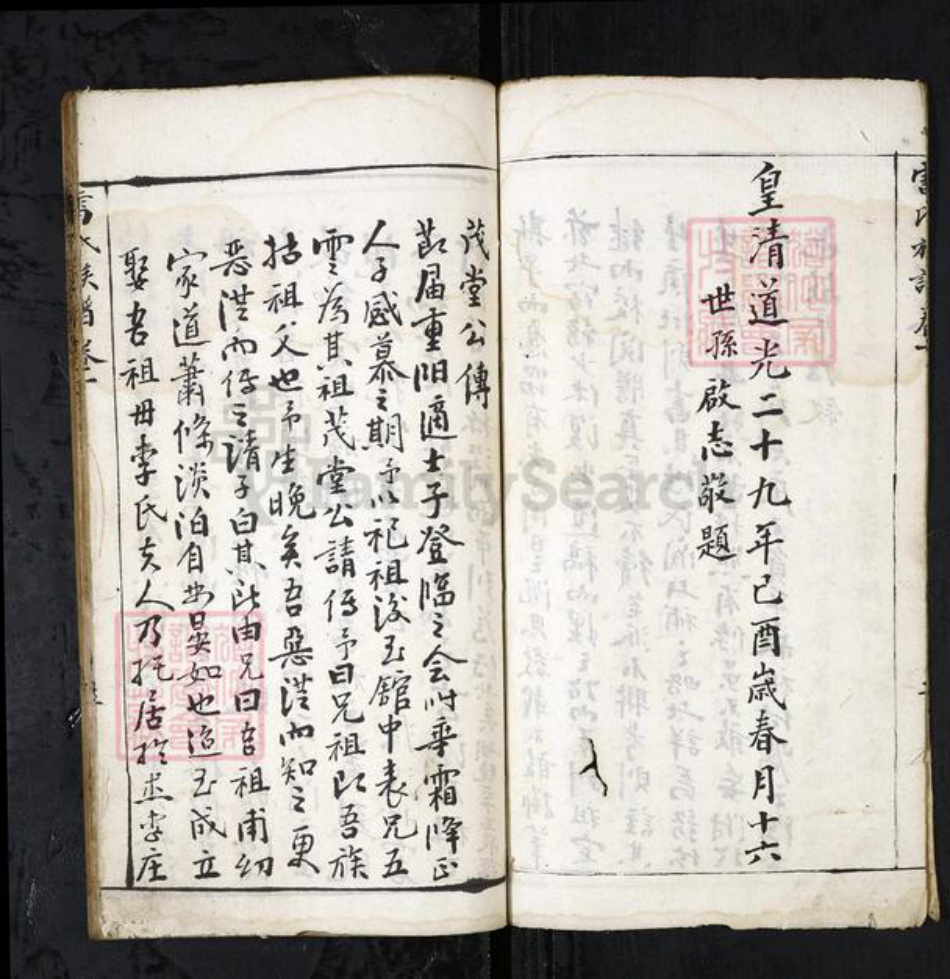 皇清道光二十九年己酉歲春月十六
世孫啟志敬題
茂堂公傳
節届重阳適士子登臨之会時奉霜降正
人子感慕之期予以祀祖後至舘中表兄五
雲為其祖茂堂公請傳予曰兄祖即吾族
祜祖父也予生晚矣吾惡從而知之更
惡從而傳之請子白其所由兄曰吾祖甫幼
家道蕭條淡泊自安晏如也迨至成立
娶吾祖母李氏夫人乃托居於李庄
氏族譜卷一
FamilySearch